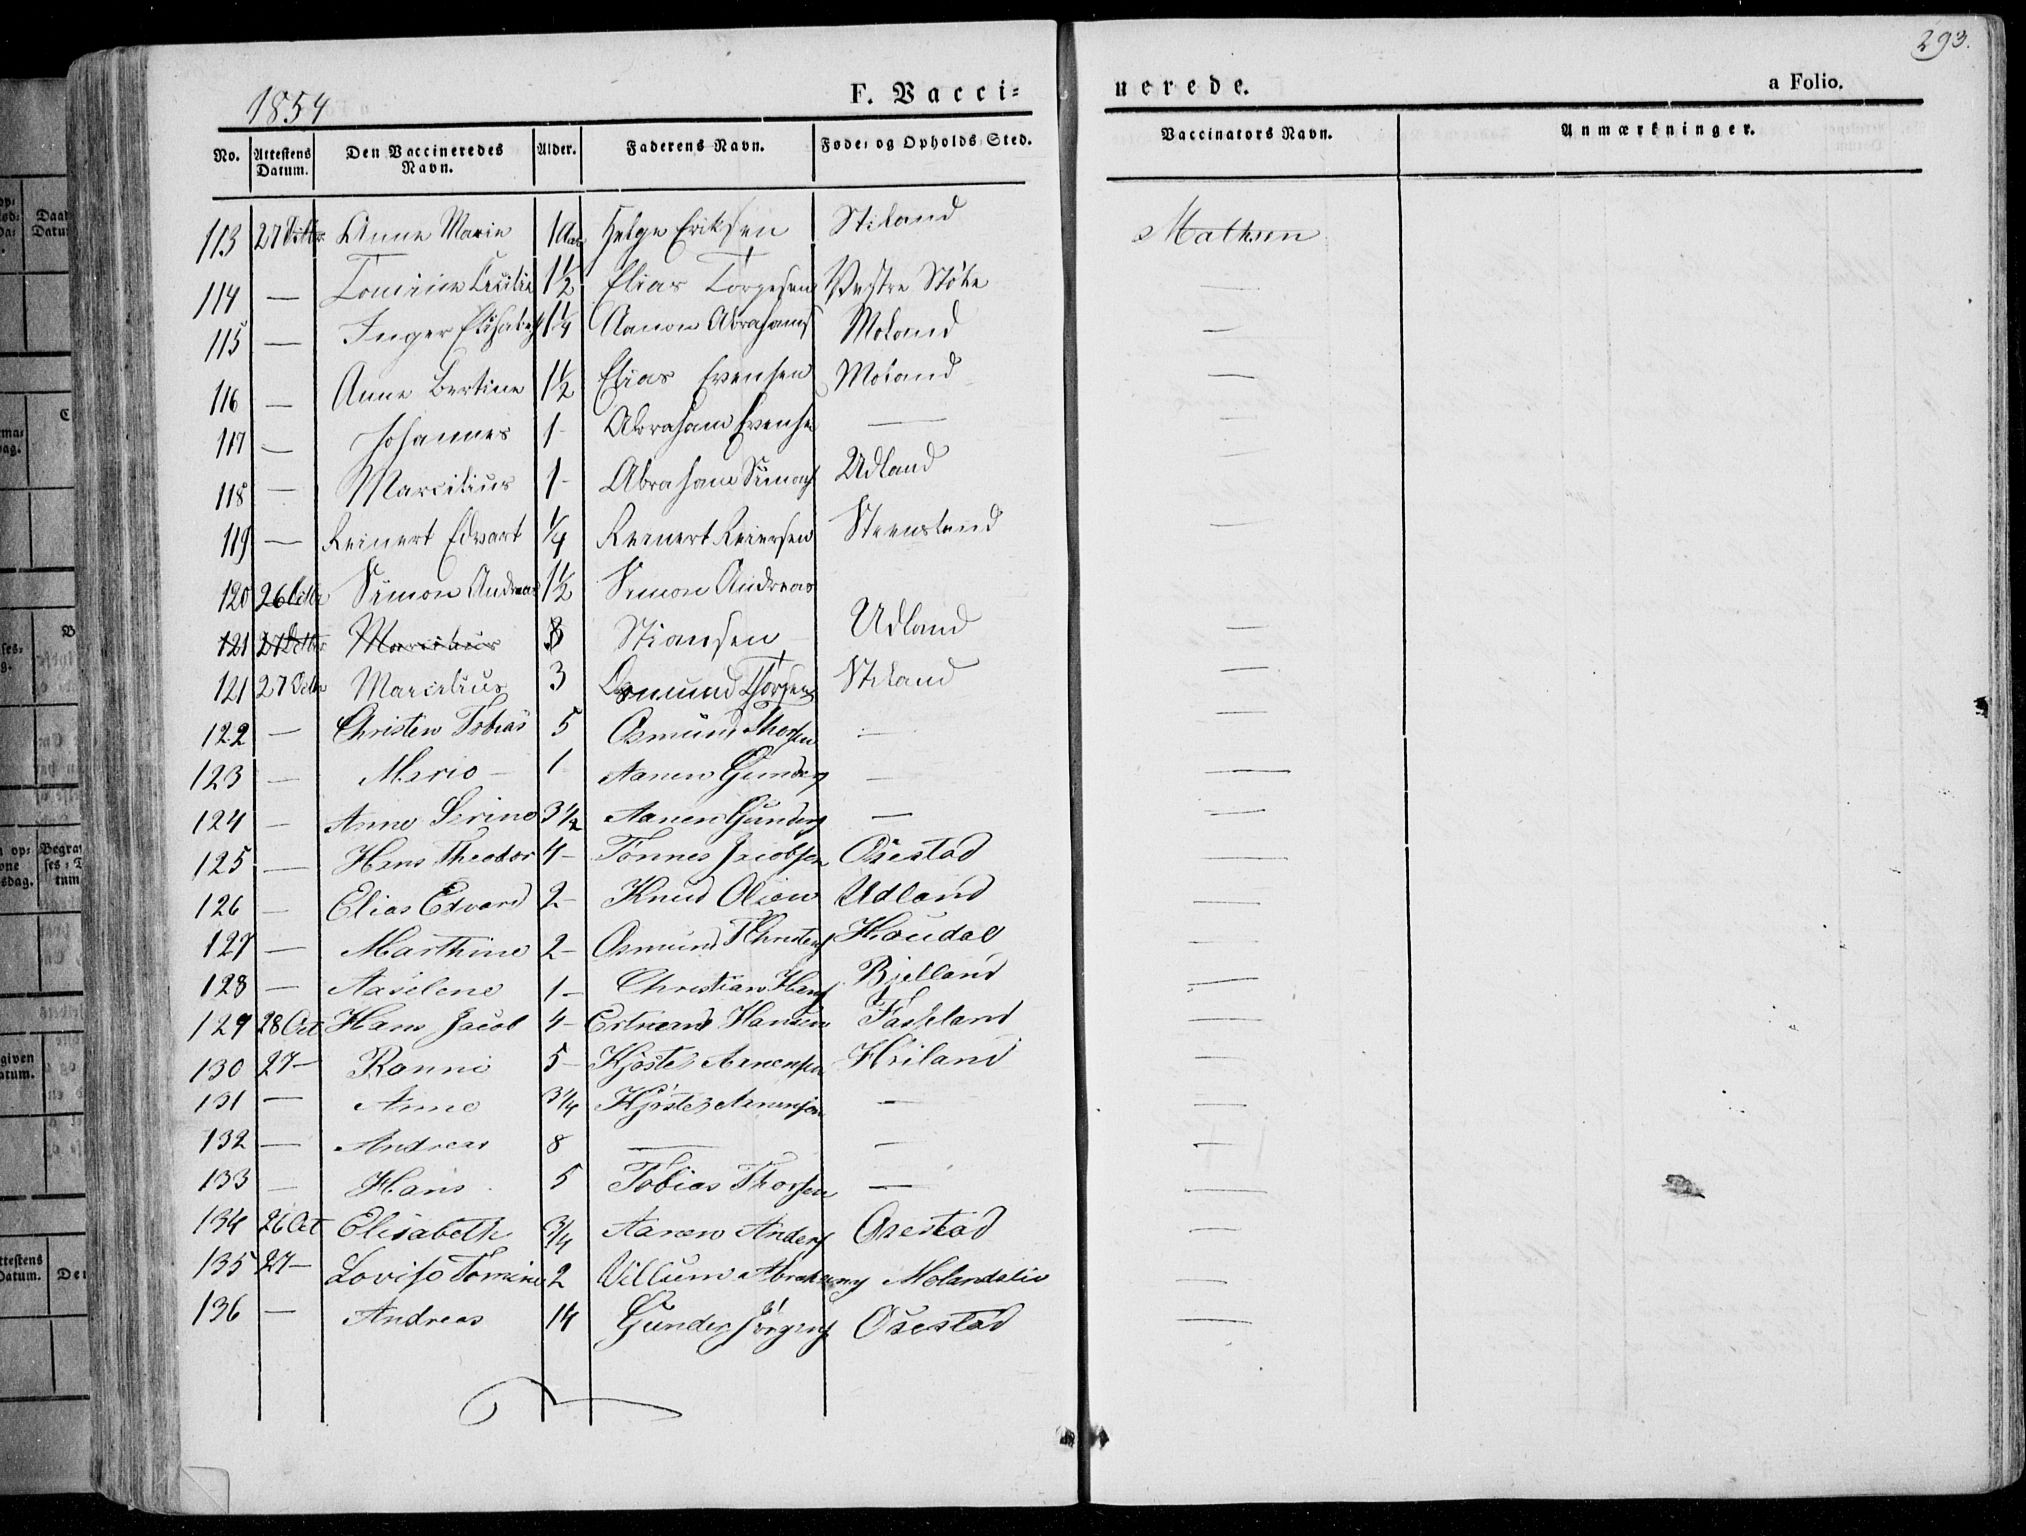 293.
1854
F. Vacci=
nerede.
a Folio.
No. Attestens Datum. Den Vaccineredes Navn. Alder. Faderens Navn. Føde- og Opholds-Sted. Vaccinators Navn. Anmærkninger.
113 27 Octbr Anne Marie 1 Aar Helge Eriksen Stiland Mathsen
114 — Tomine Cecilie 1½ Elias Torgesen Vestre Støle —
115 — Inger Elisabeth 1¼ Aanon Abrahams Moland —
116 — Anne Bertine 1½ Elias Evensen Moland —
117 — Johannes 1 - Abraham Evense —
118 — Marcilius 1 - Abraham Simons Udland —
119 — Reinert Edvart ¼ Reinert Reiersen Steensland —
120 26 Octbr Simon Andreas 1½ Simon Andreas
121 27 Octbr Marcilius 3 Stiansen Udland —
121 27 Octbr Marcilius 3 Osmund Thorsen Stiland —
122 — Christen Tobias 5 Osmund Thorsen — —
123 — Marie — 1 Aanen Gunders — —
124 — Anne Serine 3½ Aanen Gunders — —
125 — Hans Theodor 4 — Tönnes Jacobsen Osestad —
126 — Elias Edvard 2 — Knud Olsen Udland —
127 — Marthine 2 — Osmund Christens Houdal —
128 — Aaselene 1 — Christian Hans Bielland —
129 28 Oct Hans Jacob 4 — Hansen Faskeland —
130 27 — Ranni 5 — Kjöstel Aanensen Heiland —
131 — Anne 3¼ Kjöstel Aanensen — —
132 — Andreas 8 — — —
133 — Hans 5 Tobias Thorsen — —
134 26 Oct Elisabeth ¾ Aanen Anders Osestad —
135 27 — Lovise Tomine 2 Villum Abrahams Molandslie —
136 — Andreas 14 Gunder Jörgens Osestad —